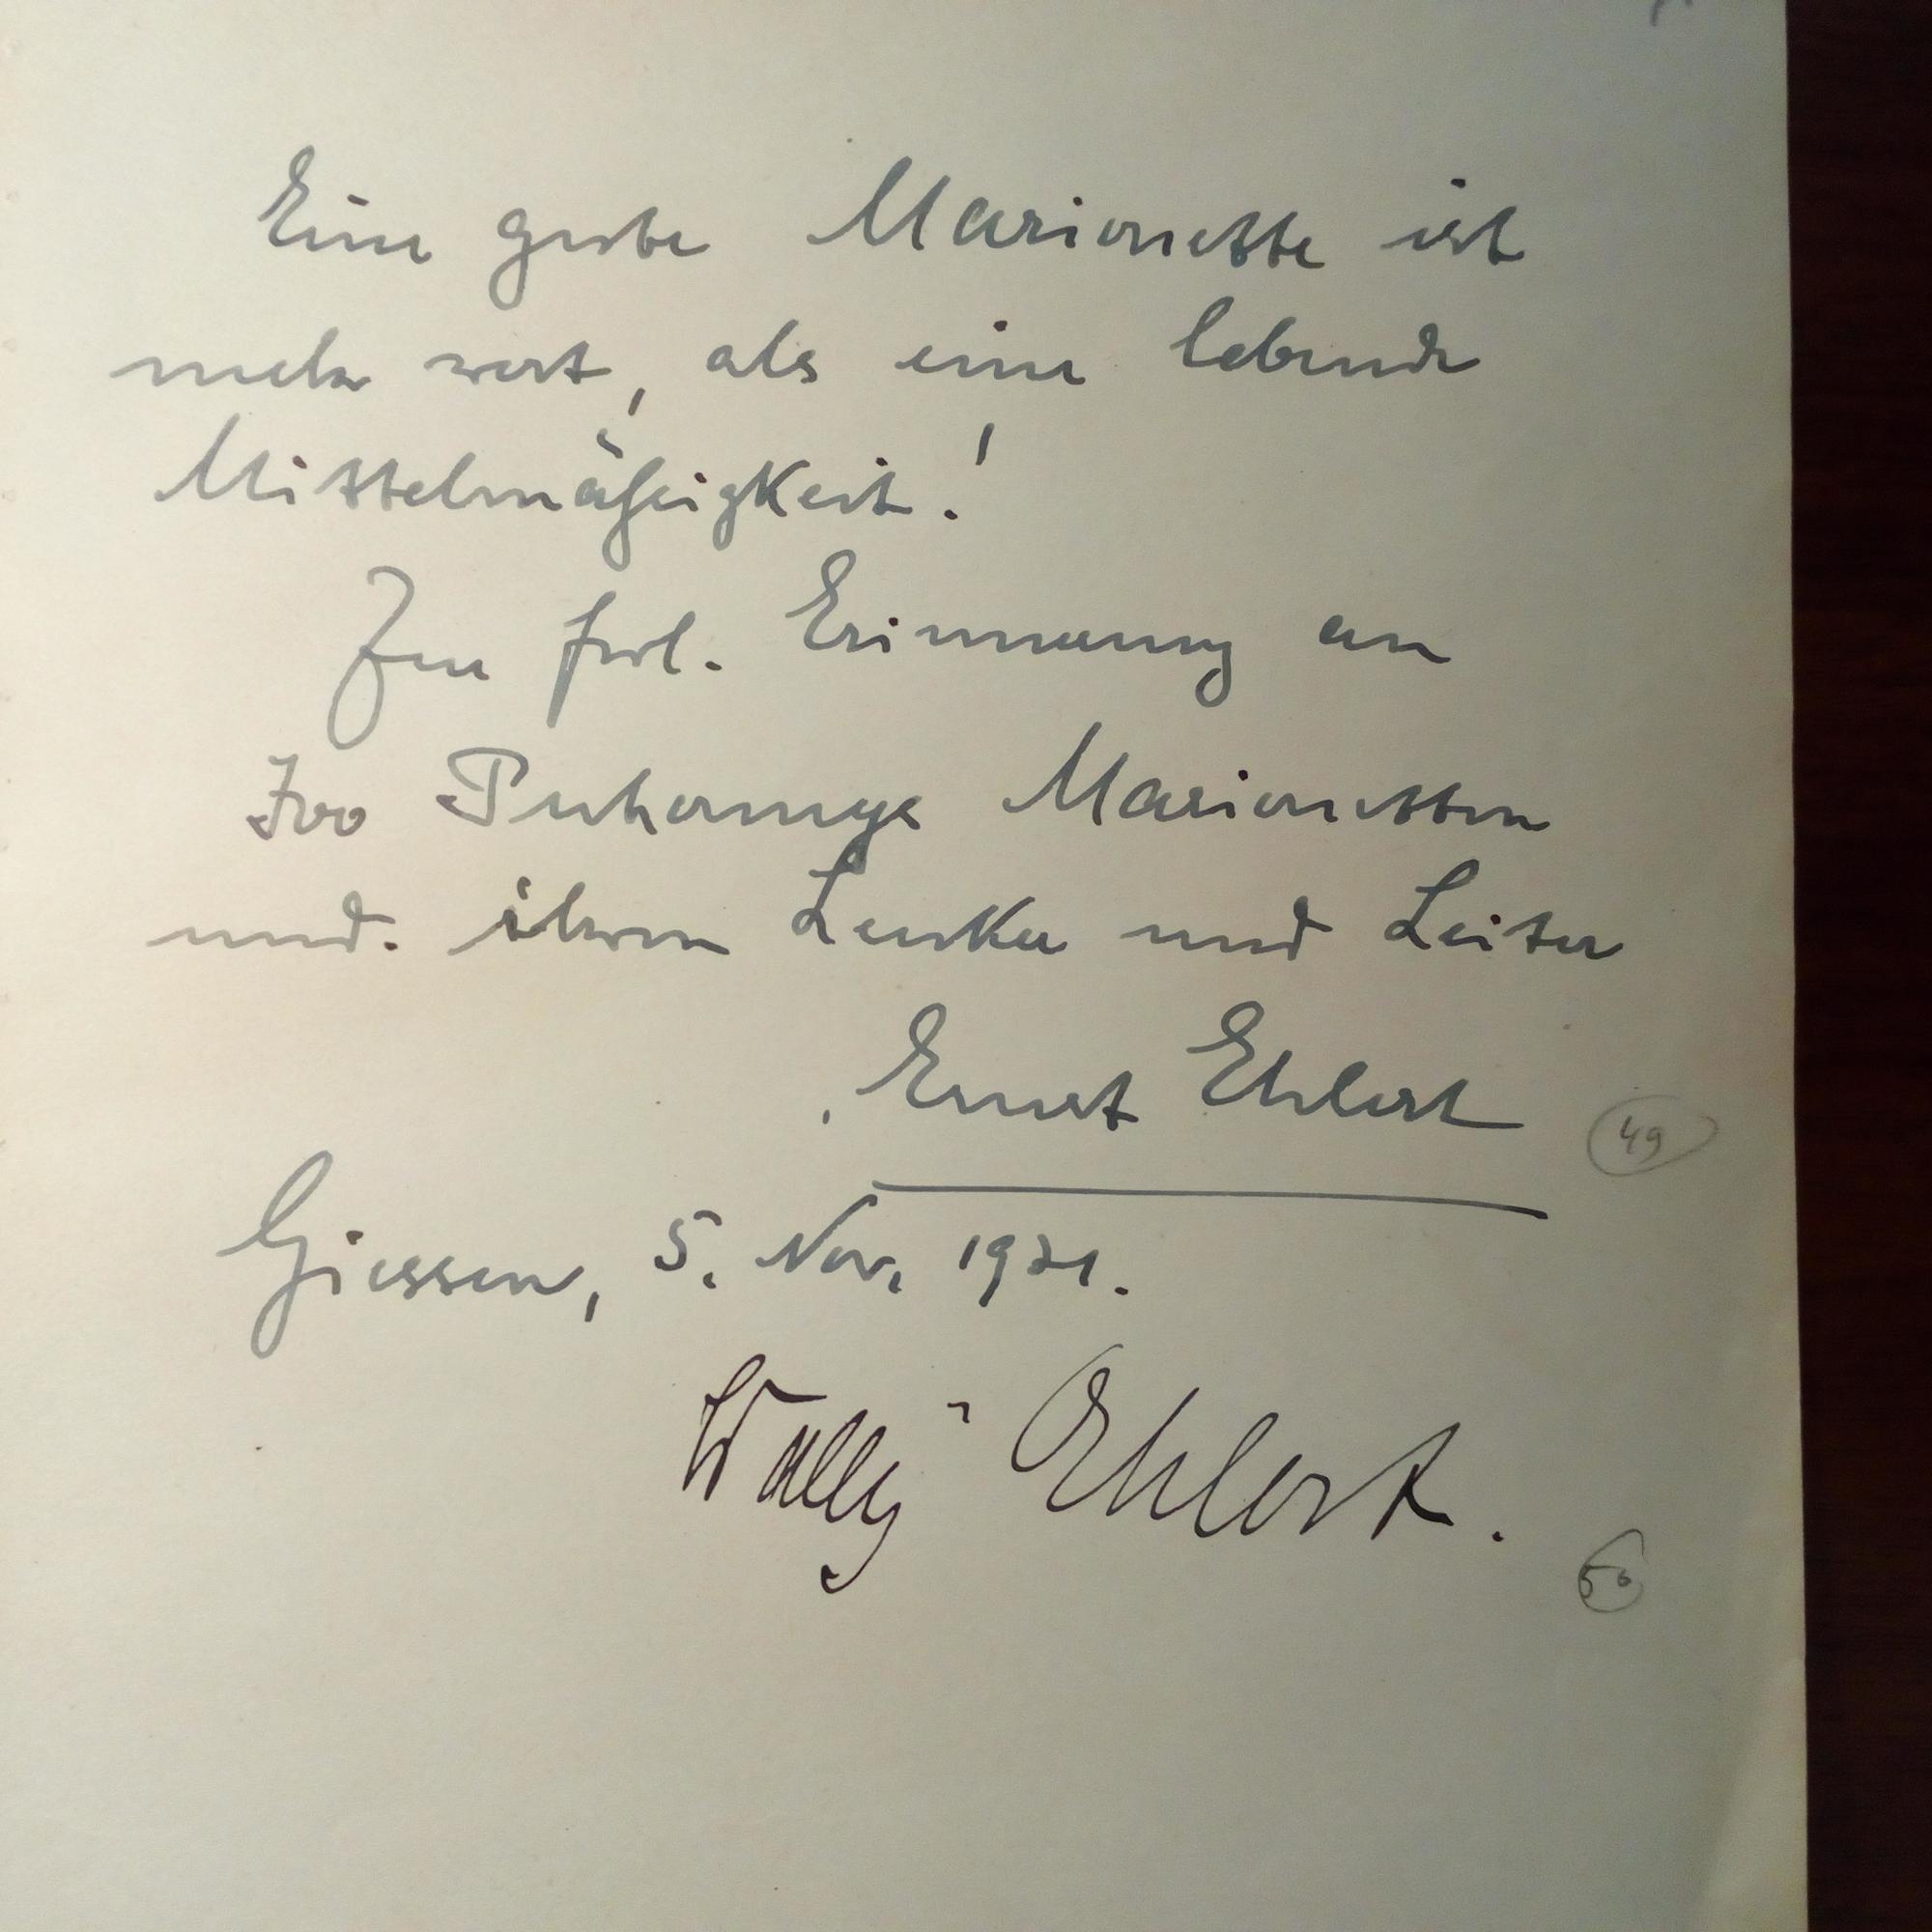 Eine gute Marionette ist
mehr wert, als eine lebende
Mittelmäßigkeit!
Zur frdl. Erinnerung an
Ivo Puhonnys Marionetten
und. ihren Lenker und Leiter
Ernst Ehlert
49
Giessen, 5. Nov. 1921.
Wally Ehlert.
50